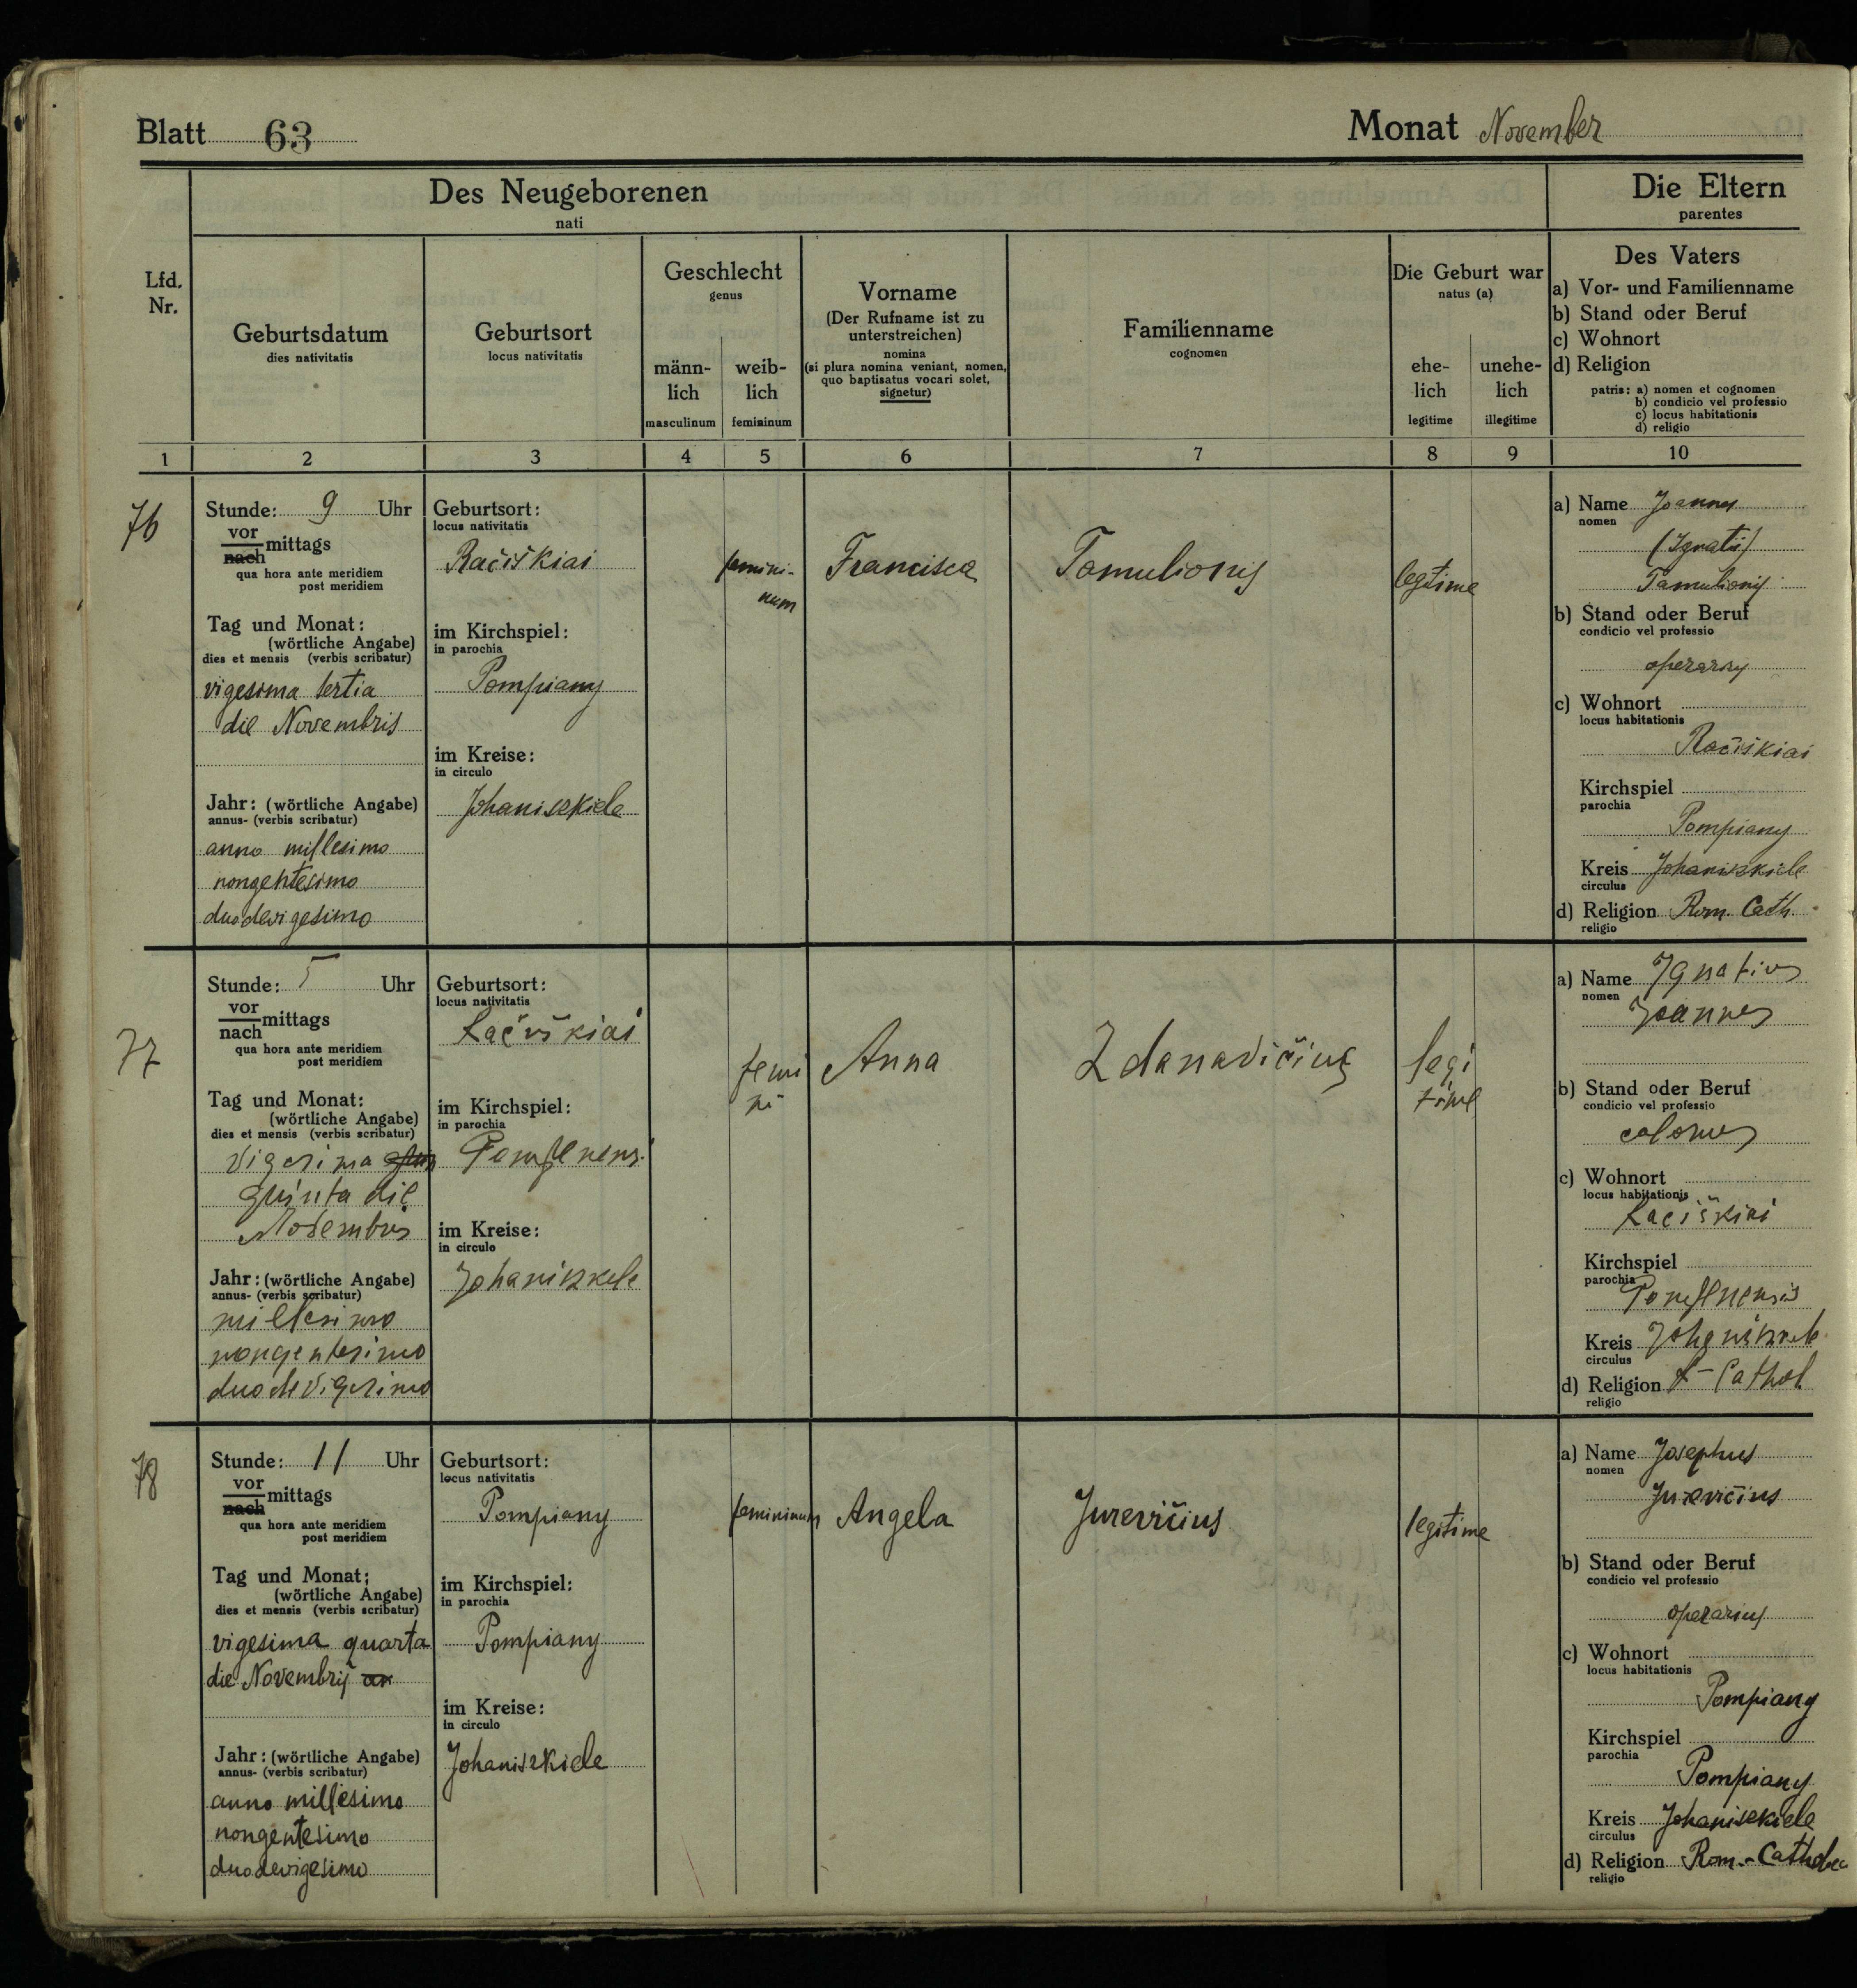 Blatt 63
Monat November
Des Neugeborenen
nati
Die Eltern
parentes
Lfd.
Nr.
Geburtsdatum
dies nativitatis
Geburtsort
locus nativitatis
Geschlecht
genus
männ-
lich
masculinum
weib-
lich
femininum
Vorname
(Der Rufname ist zu
unterstreichen)
nomina
(si plura nomina veniant, nomen,
quo baptisatus vocari solet,
signetur)
Familienname
cognomen
Die Geburt war
natus (a)
ehe-
lich
legitime
unehe-
lich
illegitime
Des Vaters
a) Vor- und Familienname
b) Stand oder Beruf
c) Wohnort
d) Religion
patris: a) nomen et cognomen
b) condicio vel professio
c) locus habitationis
d) religio
1 2 3 4 5 6 7 8 9 10
76
Stunde: 9 Uhr
vor
nach mittags
qua hora ante meridiem
post meridiem
Tag und Monat:
(wörtliche Angabe)
dies et mensis (verbis scribatur)
vigesima tertia
die Novembris
Jahr: (wörtliche Angabe)
annus- (verbis scribatur)
anno millesimo
nongentesimo
duodevigesimo
Geburtsort:
locus nativitatis
Račiškiai
im Kirchspiel:
in parochia
Pompiany
im Kreise:
in circulo
Johaniszkiele
femini-
num
Francisca
Tamulionis
legitime
a) Name Joannes
nomen
(Ignatii)
Tamulionis
b) Stand oder Beruf
condicio vel professio
operarius
c) Wohnort
locus habitationis
Račiškiai
Kirchspiel
parochia
Pompiany
Kreis Johaniszkiele
circulus
d) Religion Rom. Cath.
religio
77
Stunde: 5 Uhr
vor
nach mittags
qua hora ante meridiem
post meridiem
Tag und Monat:
(wörtliche Angabe)
dies et mensis (verbis scribatur)
vigesima
quinta die
Novembris
Jahr: (wörtliche Angabe)
annus- (verbis scribatur)
millesimo
nongentesimo
duodevigesimo
Geburtsort:
locus nativitatis
Račiškiai
im Kirchspiel:
in parochia
im Kreise:
in circulo
Johaniszkele
femi
ni
Anna
Zdanavičius
legi
time
a) Name Ignatius
nomen
Joannes
b) Stand oder Beruf
condicio vel professio
colonus
c) Wohnort
locus habitationis
Račiškiai
Kirchspiel
parochia
Kreis Johaniszkele
circulus
d) Religion R-Cathol
religio
78
Stunde: 11 Uhr
vor
nach mittags
qua hora ante meridiem
post meridiem
Tag und Monat:
(wörtliche Angabe)
dies et mensis (verbis scribatur)
vigesima quarta
die Novembris an
Jahr: (wörtliche Angabe)
annus- (verbis scribatur)
anno millesimo
nongentesimo
duodevigesimo
Geburtsort:
locus nativitatis
Pompiany
im Kirchspiel:
in parochia
Pompiany
im Kreise:
in circulo
Johaniszkiele
femininum
Angela
Jurevičius
legitime
a) Name Josephus
nomen
Jurevičius
b) Stand oder Beruf
condicio vel professio
operarius
c) Wohnort
locus habitationis
Pompiany
Kirchspiel
parochia
Pompiany
Kreis Johaniszkiele
circulus
d) Religion Rom.-Catholic
religio